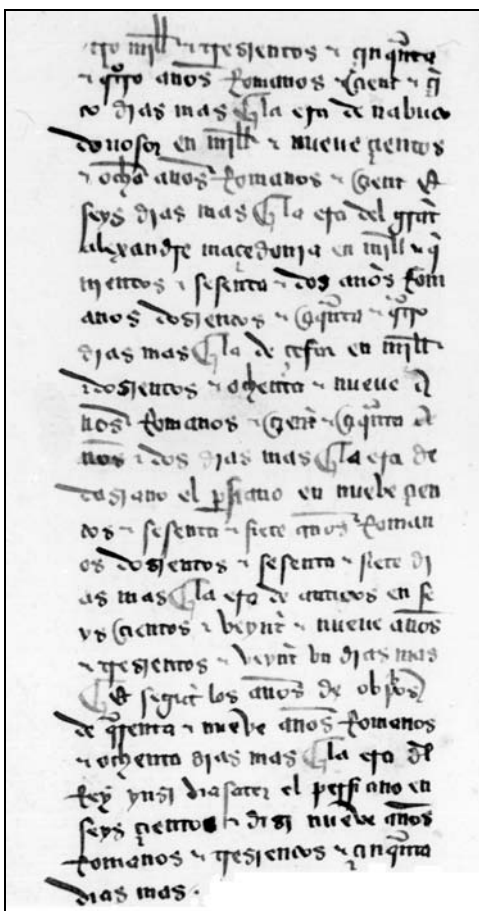 mill & tresientos & çinqũta
& qtro años Romanos & çient & çĩ
co dias mas ¶ la era de nabuco
donosor en mill & nueue çientos
& ocho años Romanos & çient &
seys dias mas ¶ la era del grãt
alexandre maçedonia en mill & q̃
nientos & sesenta & dos años Rom
anos dosientos & çinqũta & qtro
dias mas ¶ la de çesar en mill
& dosientos & ochenta & nueue a
ños Romanos & çient & çinqũta
nos & dos dias mas ¶ la era de
dosiano el persiano en nueue çien
tos & sesenta & siete años Roman
os dosientos & sesenta & siete di
as mas ¶ la era de anticos en se
ys çientos & veynt & nueue años
& tresientos & veynt vn dias mas
¶ Et segũt los años de
de qrenta & nueve años Romanos
& ochenta dias mas ¶ la era dl
Rey ynsi diasater el persiano en
seys çientos & disi nueve años
Romanos & tresientos & çinqũta
dias mas.